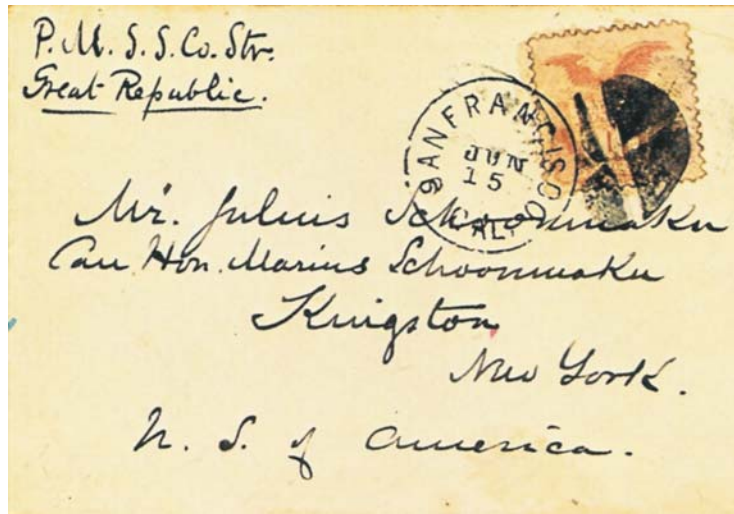 P. M. S. S. Co. Str.
Great Republic.
SAN FRANCISCO
JUN
15
CAL.
Mr. Julius Schoonmaker
Care Hon. Marius Schoonmaker
Kingston
New York.
U. S. of America.